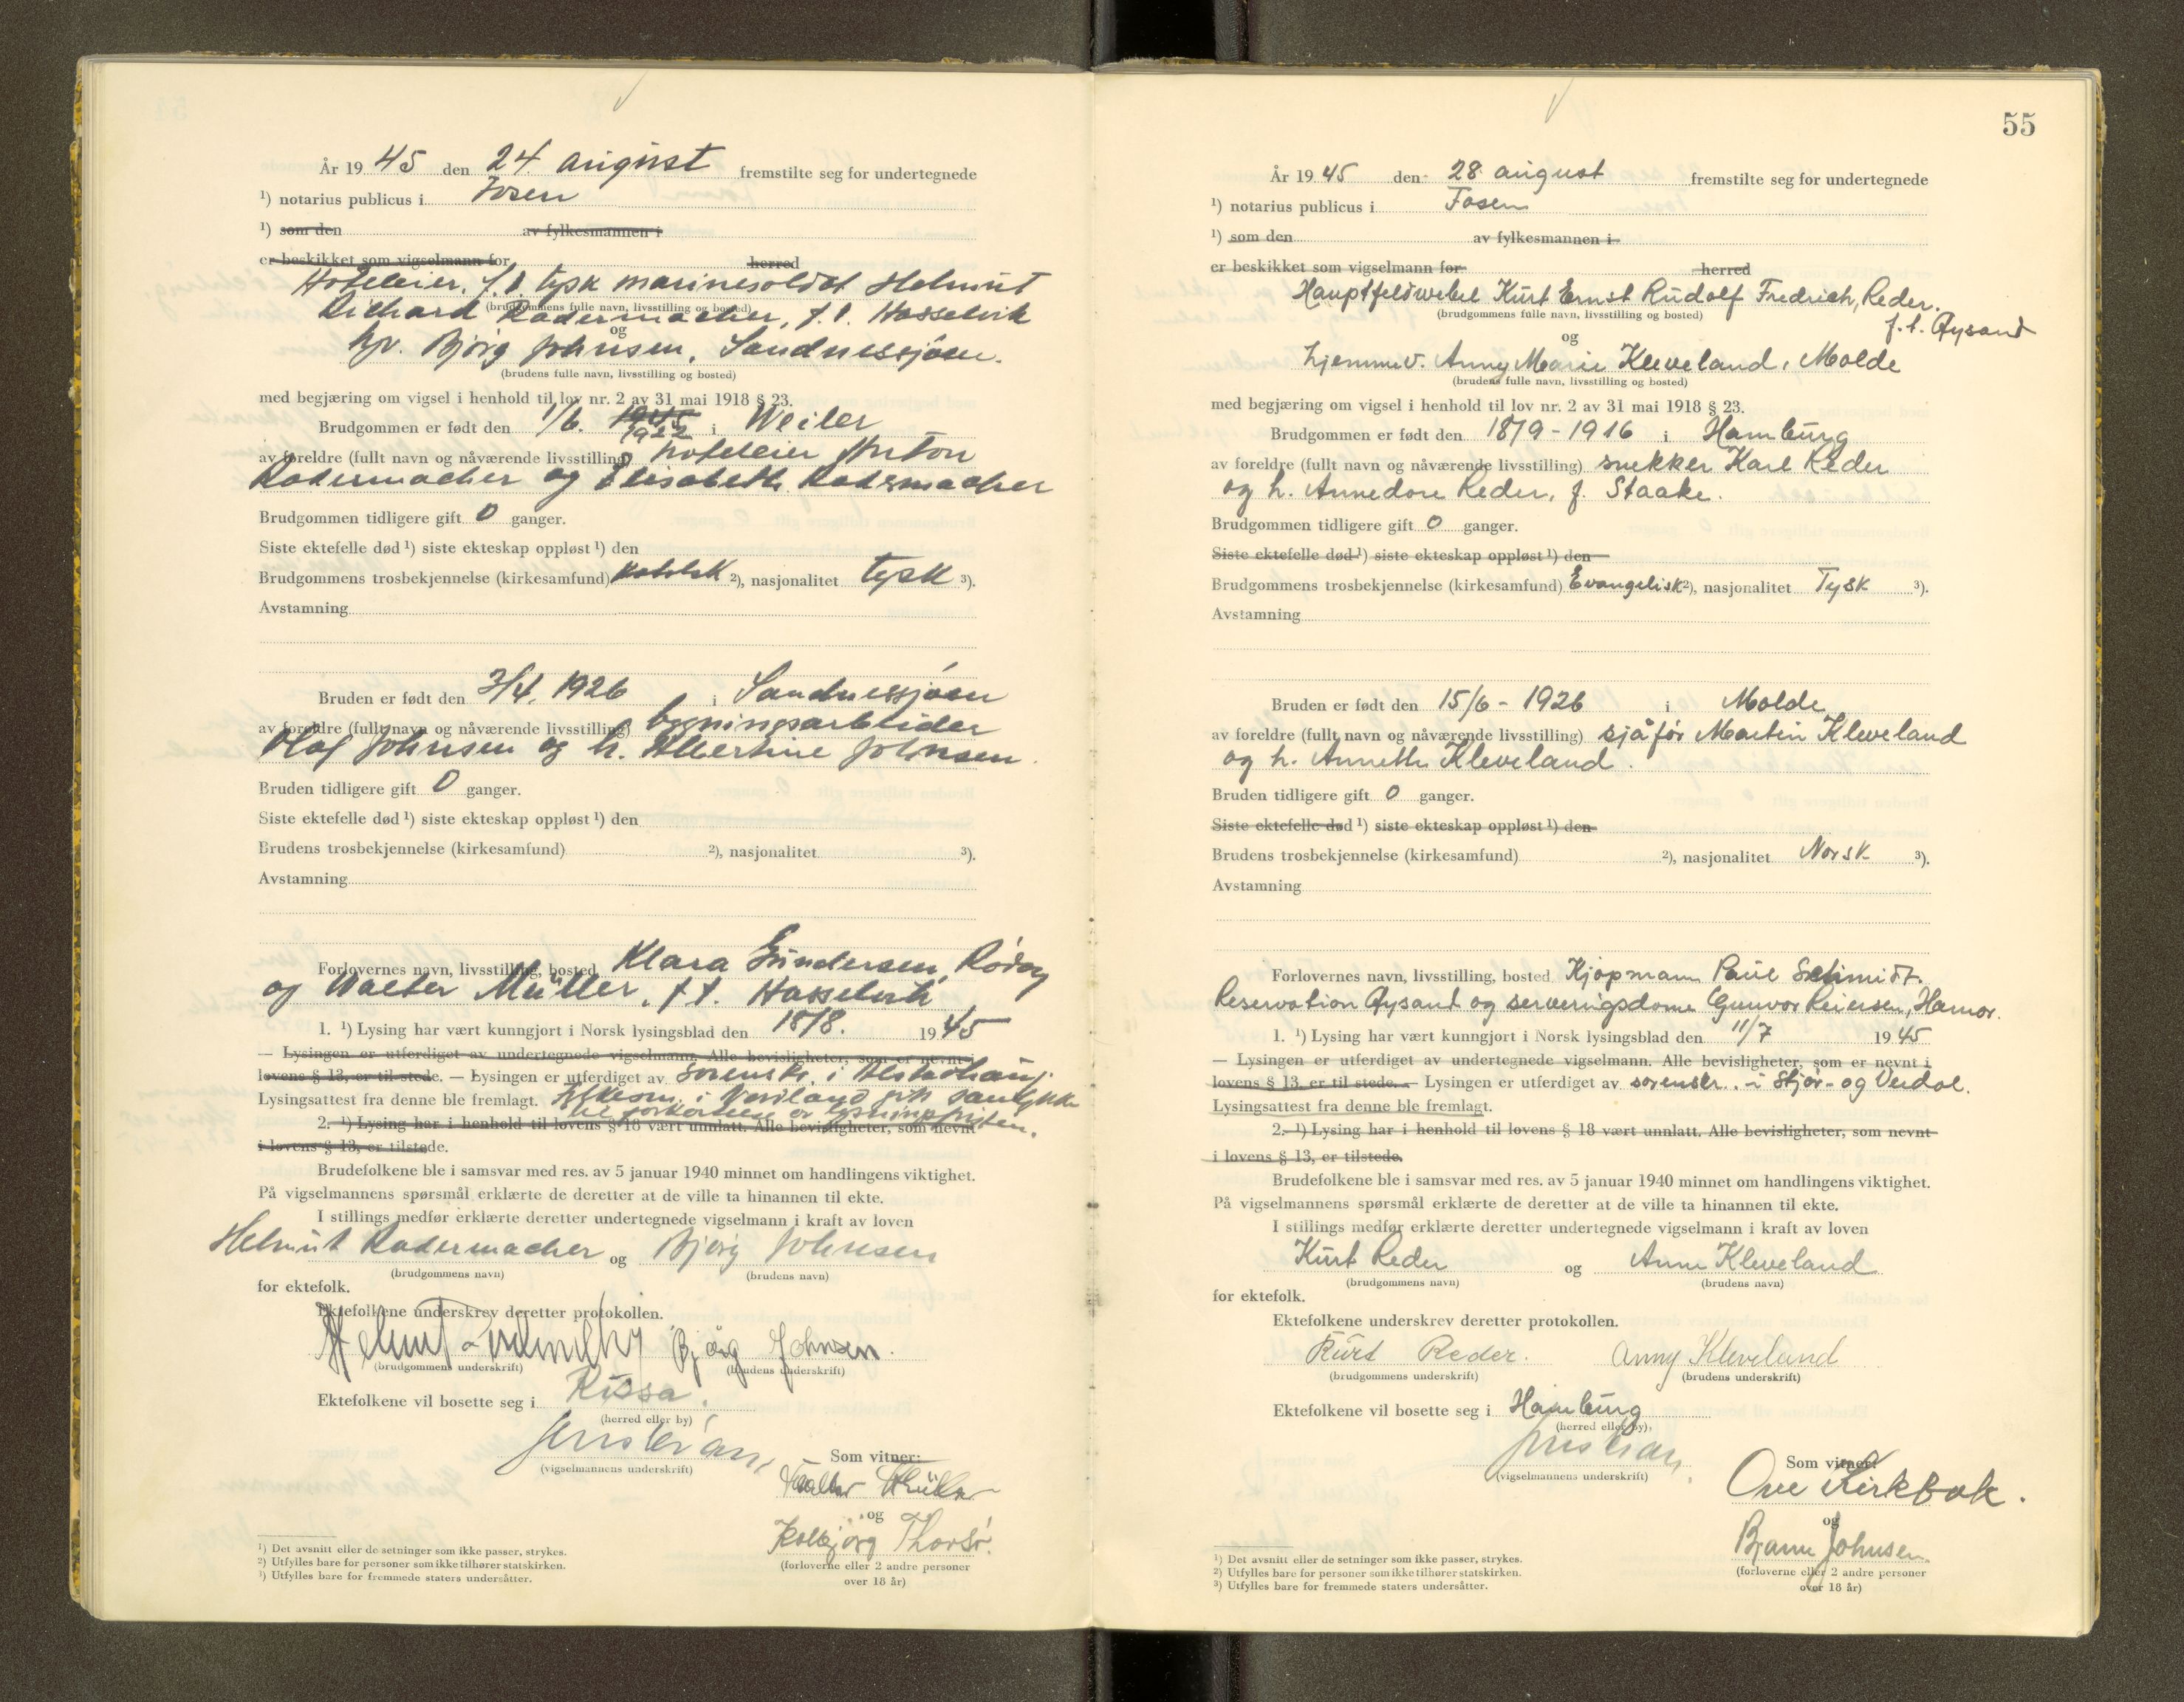 År 1945 den 24. august fremstilte seg for undertegnede
¹) notarius publicus i Fosen
¹) som den av fylkesmannen i
er beskikket som vigselmann for herred
Hoteleier, f.t. tysk marinesoldat Helmut
Richard Radermacher, f.t. Hasselvik
(brudgommens fulle navn, livsstilling og bosted)
og
hjv. Bjørg Johnsen, Sandnessjøen.
(brudens fulle navn, livsstilling og bosted)
med begjæring om vigsel i henhold til lov nr. 2 av 31 mai 1918 § 23.
Brudgommen er født den 1/6. 1945 1922 i Weiler
av foreldre (fullt navn og nåværende livsstilling) hoteleier Anton
Radermacher og Elisabeth Radermacher
Brudgommen tidligere gift 0 ganger.
Siste ektefelle død ¹) siste ekteskap oppløst ¹) den
Brudgommens trosbekjennelse (kirkesamfund) katolsk ²), nasjonalitet tysk ³).
Avstamning
Bruden er født den 3/4. 1926 i Sandnessjøen
av foreldre (fullt navn og nåværende livsstilling) bygningsarbeider
Olaf Johnsen og h. Albertine Johnsen.
Bruden tidligere gift 0 ganger.
Siste ektefelle død ¹) siste ekteskap oppløst ¹) den
Brudens trosbekjennelse (kirkesamfund) ²), nasjonalitet ³).
Avstamning
Forlovernes navn, livsstilling, bosted Klara Gundersen, Rødøy
og Walter Müller, f.t. Hasselvik
1. ¹) Lysing har vært kunngjort i Norsk lysingsblad den 18/8. 1945
— Lysingen er utferdiget av undertegnede vigselmann. Alle bevisligheter, som er nevnt i
lovens § 13, er til stede. — Lysingen er utferdiget av sorenskr. i Alstahaug.
Lysingsattest fra denne ble fremlagt. Fylkesm. i Nordland gitt samtykke
til forkortelse av lysningsfristen.
2. ¹) Lysing har i henhold til lovens § 18 vært unnlatt. Alle bevisligheter, som nevnt
i lovens § 13, er tilstede.
Brudefolkene ble i samsvar med res. av 5 januar 1940 minnet om handlingens viktighet.
På vigselmannens spørsmål erklærte de deretter at de ville ta hinannen til ekte.
I stillings medfør erklærte deretter undertegnede vigselmann i kraft av loven
Helmut Radermacher og Bjørg Johnsen
(brudgommens navn) (brudens navn)
for ektefolk.
Ektefolkene underskrev deretter protokollen.
Helmut Radermacher Bjørg Johnsen.
(brudgommens underskrift) (brudens underskrift)
Ektefolkene vil bosette seg i Rissa.
(herred eller by)
(vigselmannens underskrift)
Som vitner:
Walter Müller
og
Kolbjørg Thorsø.
(forloverne eller 2 andre personer
over 18 år)
¹) Det avsnitt eller de setninger som ikke passer, strykes.
²) Utfylles bare for personer som ikke tilhører statskirken.
³) Utfylles bare for fremmede staters undersåtter.
55
År 1945 den 28. august fremstilte seg for undertegnede
¹) notarius publicus i Fosen
¹) som den av fylkesmannen i
er beskikket som vigselmann for herred
Hauptfeldwebel Kurt Ernst Rudolf Fredrich, Reder.
(brudgommens fulle navn, livsstilling og bosted) f.t. Øysand
og
hjemmev. Anny Marie Kleveland, Molde
(brudens fulle navn, livsstilling og bosted)
med begjæring om vigsel i henhold til lov nr. 2 av 31 mai 1918 § 23.
Brudgommen er født den 18/9 - 1916 i Hamburg
av foreldre (fullt navn og nåværende livsstilling) snekker Karl Reder
og h. Annedore Reder, f. Staake.
Brudgommen tidligere gift 0 ganger.
Siste ektefelle død ¹) siste ekteskap oppløst ¹) den
Brudgommens trosbekjennelse (kirkesamfund) Evangelisk ²), nasjonalitet Tysk ³).
Avstamning
Bruden er født den 15/6 - 1926 i Molde
av foreldre (fullt navn og nåværende livsstilling) sjåfør Martin Kleveland
og h. Anneth Kleveland.
Bruden tidligere gift 0 ganger.
Siste ektefelle død ¹) siste ekteskap oppløst ¹) den
Brudens trosbekjennelse (kirkesamfund) ²), nasjonalitet Norsk ³).
Avstamning
Forlovernes navn, livsstilling, bosted Kjøpmann Paul Schmidt.
Reservation Øysand og serveringsdame Gunvor Reiersen, Hamar.
1. ¹) Lysing har vært kunngjort i Norsk lysingsblad den 11/7 1945
— Lysingen er utferdiget av undertegnede vigselmann. Alle bevisligheter, som er nevnt i
lovens § 13, er til stede. — Lysingen er utferdiget av sorenskr. i Stjør- og Verdal.
Lysingsattest fra denne ble fremlagt.
2. ¹) Lysing har i henhold til lovens § 18 vært unnlatt. Alle bevisligheter, som nevnt
i lovens § 13, er tilstede.
Brudefolkene ble i samsvar med res. av 5 januar 1940 minnet om handlingens viktighet.
På vigselmannens spørsmål erklærte de deretter at de ville ta hinannen til ekte.
I stillings medfør erklærte deretter undertegnede vigselmann i kraft av loven
Kurt Reder og Anne Kleveland
(brudgommens navn) (brudens navn)
for ektefolk.
Ektefolkene underskrev deretter protokollen.
Kurt Reder. Anny Kleveland
(brudgommens underskrift) (brudens underskrift)
Ektefolkene vil bosette seg i Hamburg
(herred eller by)
(vigselmannens underskrift)
Som vitner:
Ove Kirkbak.
og
Bjarne Johnsen.
(forloverne eller 2 andre personer
over 18 år)
¹) Det avsnitt eller de setninger som ikke passer, strykes.
²) Utfylles bare for personer som ikke tilhører statskirken.
³) Utfylles bare for fremmede staters undersåtter.